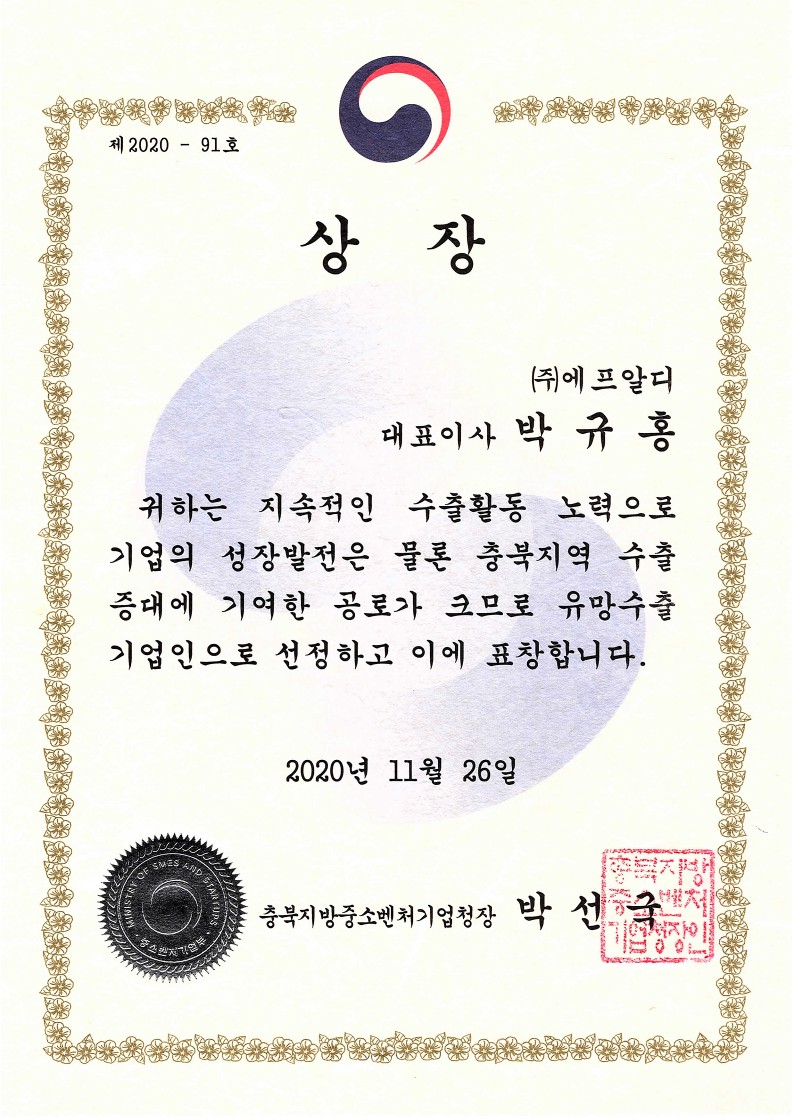 제2020 - 91호
상 장
㈜에프알디
대표이사 박 규 홍
귀하는 지속적인 수출활동 노력으로
기업의 성장발전은 물론 충북지역 수출
증대에 기여한 공로가 크므로 유망수출
기업인으로 선정하고 이에 표창합니다.
2020년 11월 26일
MINISTRY OF SMES AND STARTUPS
중소벤처기업부
충북지방중소벤처기업청장 박 선 국
충북지방
중소벤처
기업청장인